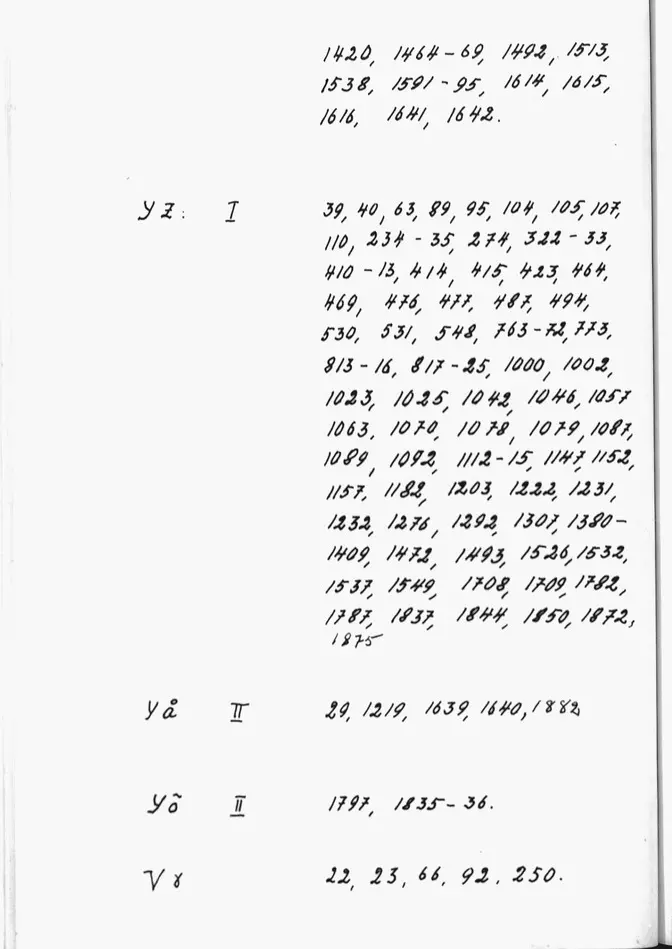 1420, 1464-69, 1492, 1513,
1538, 1591-95, 1614, 1615,
1616, 1641, 1642.
YZ: I 39, 40, 63, 89, 95, 104, 105, 107,
110, 234-35, 274, 322-33,
410-13, 414, 415, 423, 464,
469, 476, 477, 487, 494,
530, 531, 548, 763-72, 773,
813-16, 817-25, 1000, 1002,
1023, 1025, 1042, 1046, 1057
1063, 1070, 1078, 1079, 1087,
1089, 1092, 1112-15, 1147, 1152,
1157, 1182, 1203, 1222, 1231,
1232, 1276, 1292, 1307, 1380-
1409, 1472, 1493, 1526, 1532,
1537, 1549, 1708, 1709, 1782,
1787, 1837, 1844, 1850, 1872,
1875
Yå II 29, 1219, 1639, 1640, 1882
Yõ II 1797, 1835-36.
Vɣ 22, 23, 66, 92, 250.